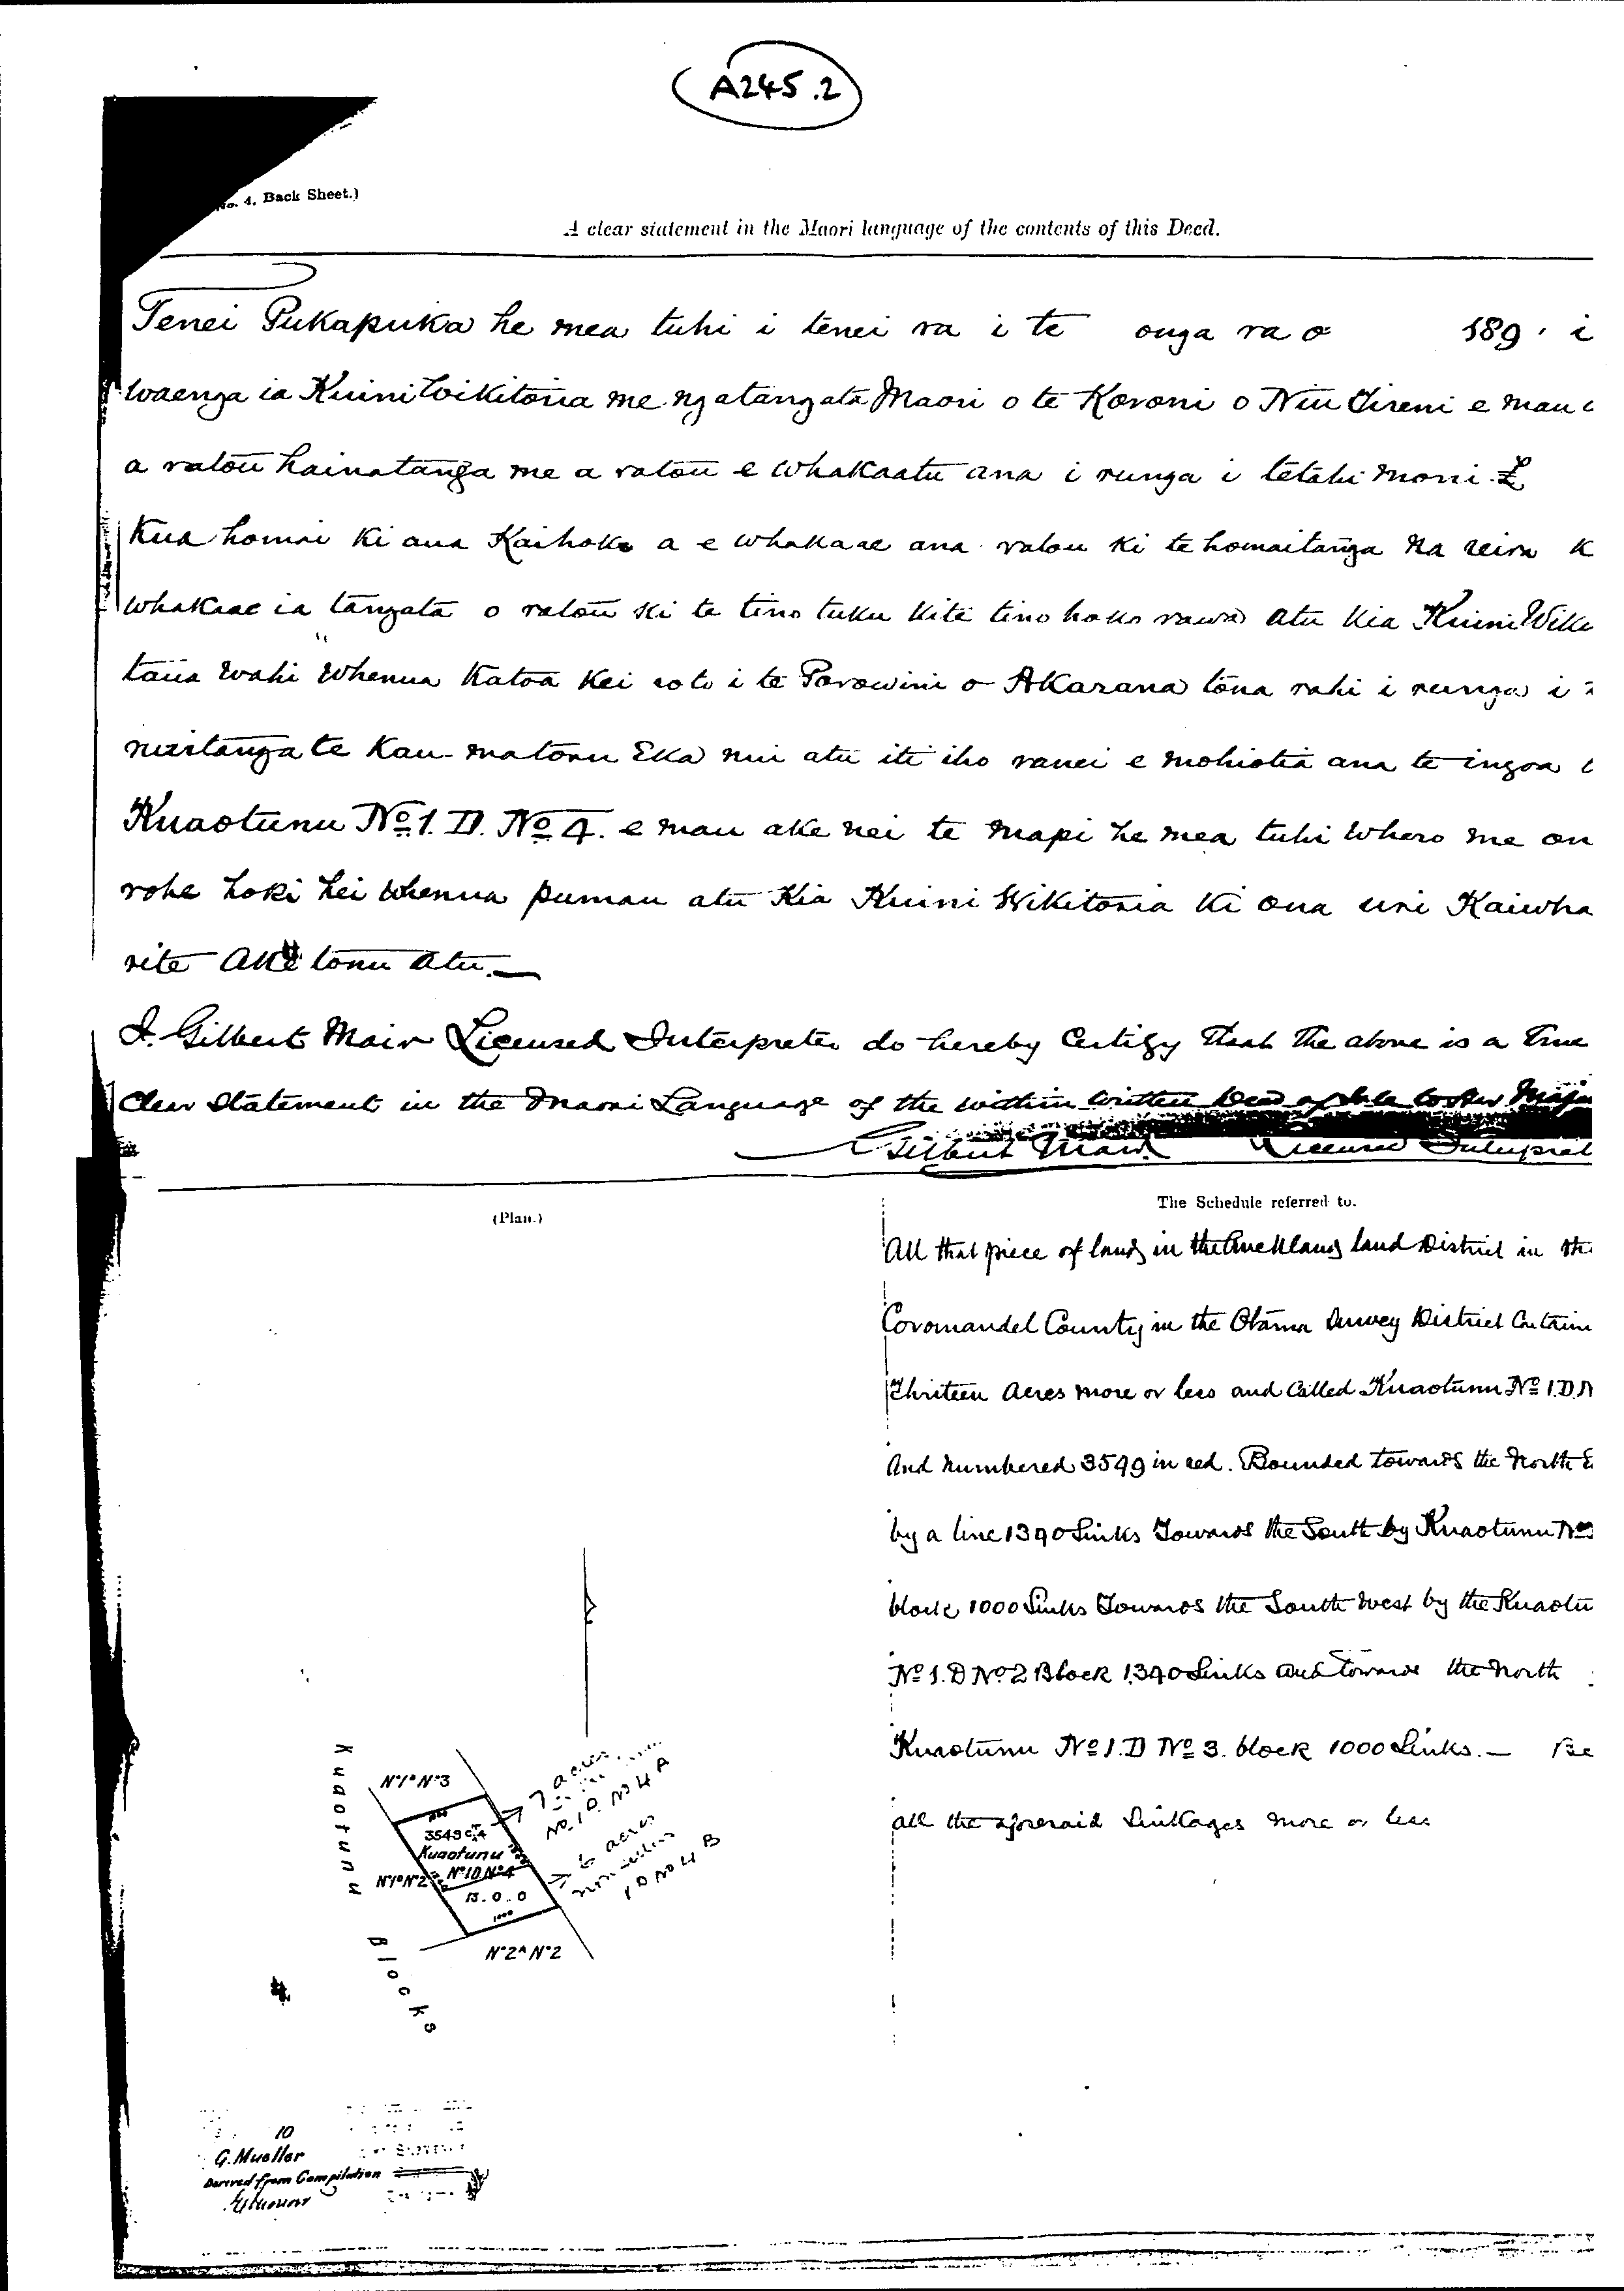 A245.2
No. 4. Back Sheet.)
A clear statement in the Maori language of the contents of this Deed.
Tenei Pukapuka he mea tuhi i tenei ra i te onga ra o 189 . i
waenga ia Kuini Wikitoria me nga tangata Maori o te Koroni o Niu Tireni e mau
a ratou hainatanga me a ratou e whakaatu ana i runga i tetahi moni £
Kua homai ki aua Kaihoko a e whakaae ana ratou ki te homaitanga na reira K
whakaae ia tangata o ratou ki te tino tuku ki te tino hoko rawa atu kia Kuini Wiki
taua wahi whenua Katoa Kei roto i te Porowini o Akarana tona rahi i runga i
nuitanga te Kau-matoru Eka nui atu iti iho ranei e mohiotia ana te ingoa
Kuaotunu No. 1. D. No. 4. e mau ake nei te mapi he mea tuhi whero me on
rohe hoki hei whenua pumau atu Kia Kuini Wikitoria Ki ona uri Kaiwha
rite Ake tonu atu.—
I. Gilbert Mair Licensed Interpreter do hereby Certify that the above is a True
Clear Statement in the Maori Language of the within written
Gilbert Mair Licensed Interpret
(Plan.)
The Schedule referred to.
All that piece of land in the Auckland land District in the
Coromandel County in the Otama Survey District Contain
Thriteen Acres more or less and Called Kuaotunu No 1.D.N
And numbered 3549 in red. Bounded towards the North E
by a line 1390 Links Towards the South by Kuaotunu No
block 1000 Links Towards the South West by the Kuaotu
No 1. D No 2 Block 1390 Links and towards the North
Kuaotunu No 1. D No 3. block 1000 Links.— Be
all the aforesaid Linkages more or less
Kuaotunu Blocks
No 1D No 3
7 acres
No. 1D. No 4A
3549
Kuaotunu
No 1D No 4
13.0.0
1000
6 acres
1D No 4B
No 1D No 2
No 2A No 2
10
G. Mueller
Derived from Compilation